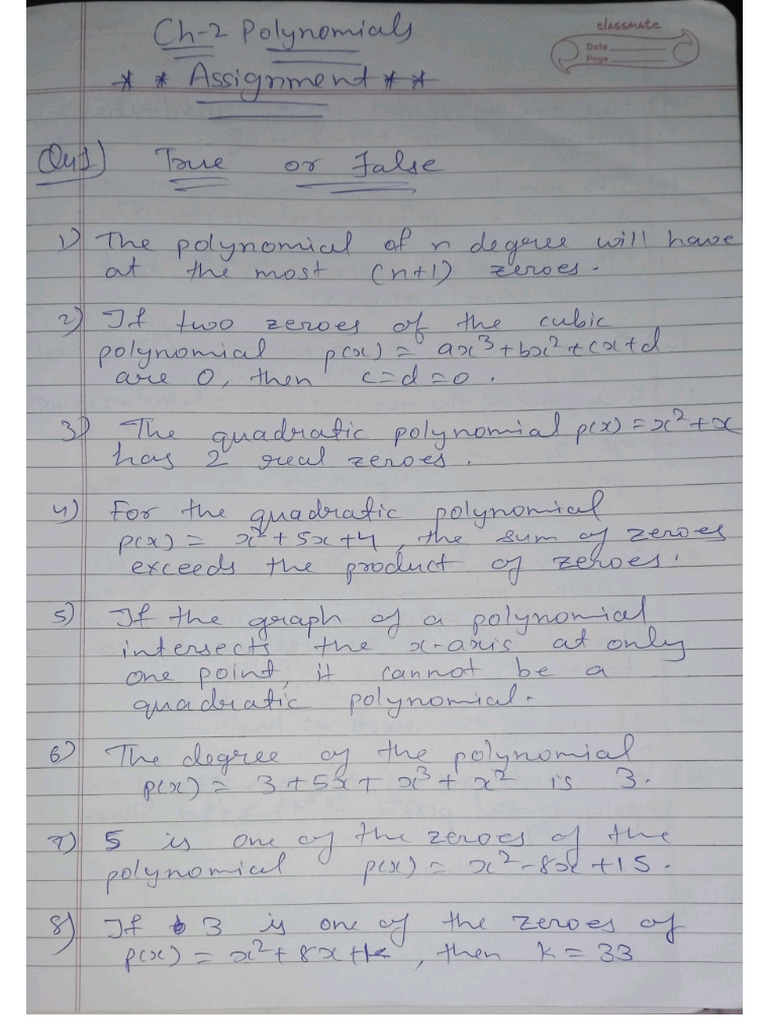 Ch-2 Polynomials
classmate
Date
Page
* * Assignment * *
Qu1) True or False
1) The polynomial of n degree will have
at the most (n+1) zeroes.
2) If two zeroes of the cubic
polynomial p(x) = ax³+bx²+cx+d
are 0, then c=d=0.
3) The quadratic polynomial p(x)=x²+x
has 2 real zeroes.
4) For the quadratic polynomial
p(x) = x²+5x+4, the sum of zeroes
exceeds the product of zeroes.
5) If the graph of a polynomial
intersects the x-axis at only
one point, it cannot be a
quadratic polynomial.
6) The degree of the polynomial
p(x) = 3+5x+x³+x² is 3.
7) 5 is one of the zeroes of the
polynomial p(x) = x²-8x+15.
8) If 3 is one of the zeroes of
p(x) = x²+8x+k, then k=33